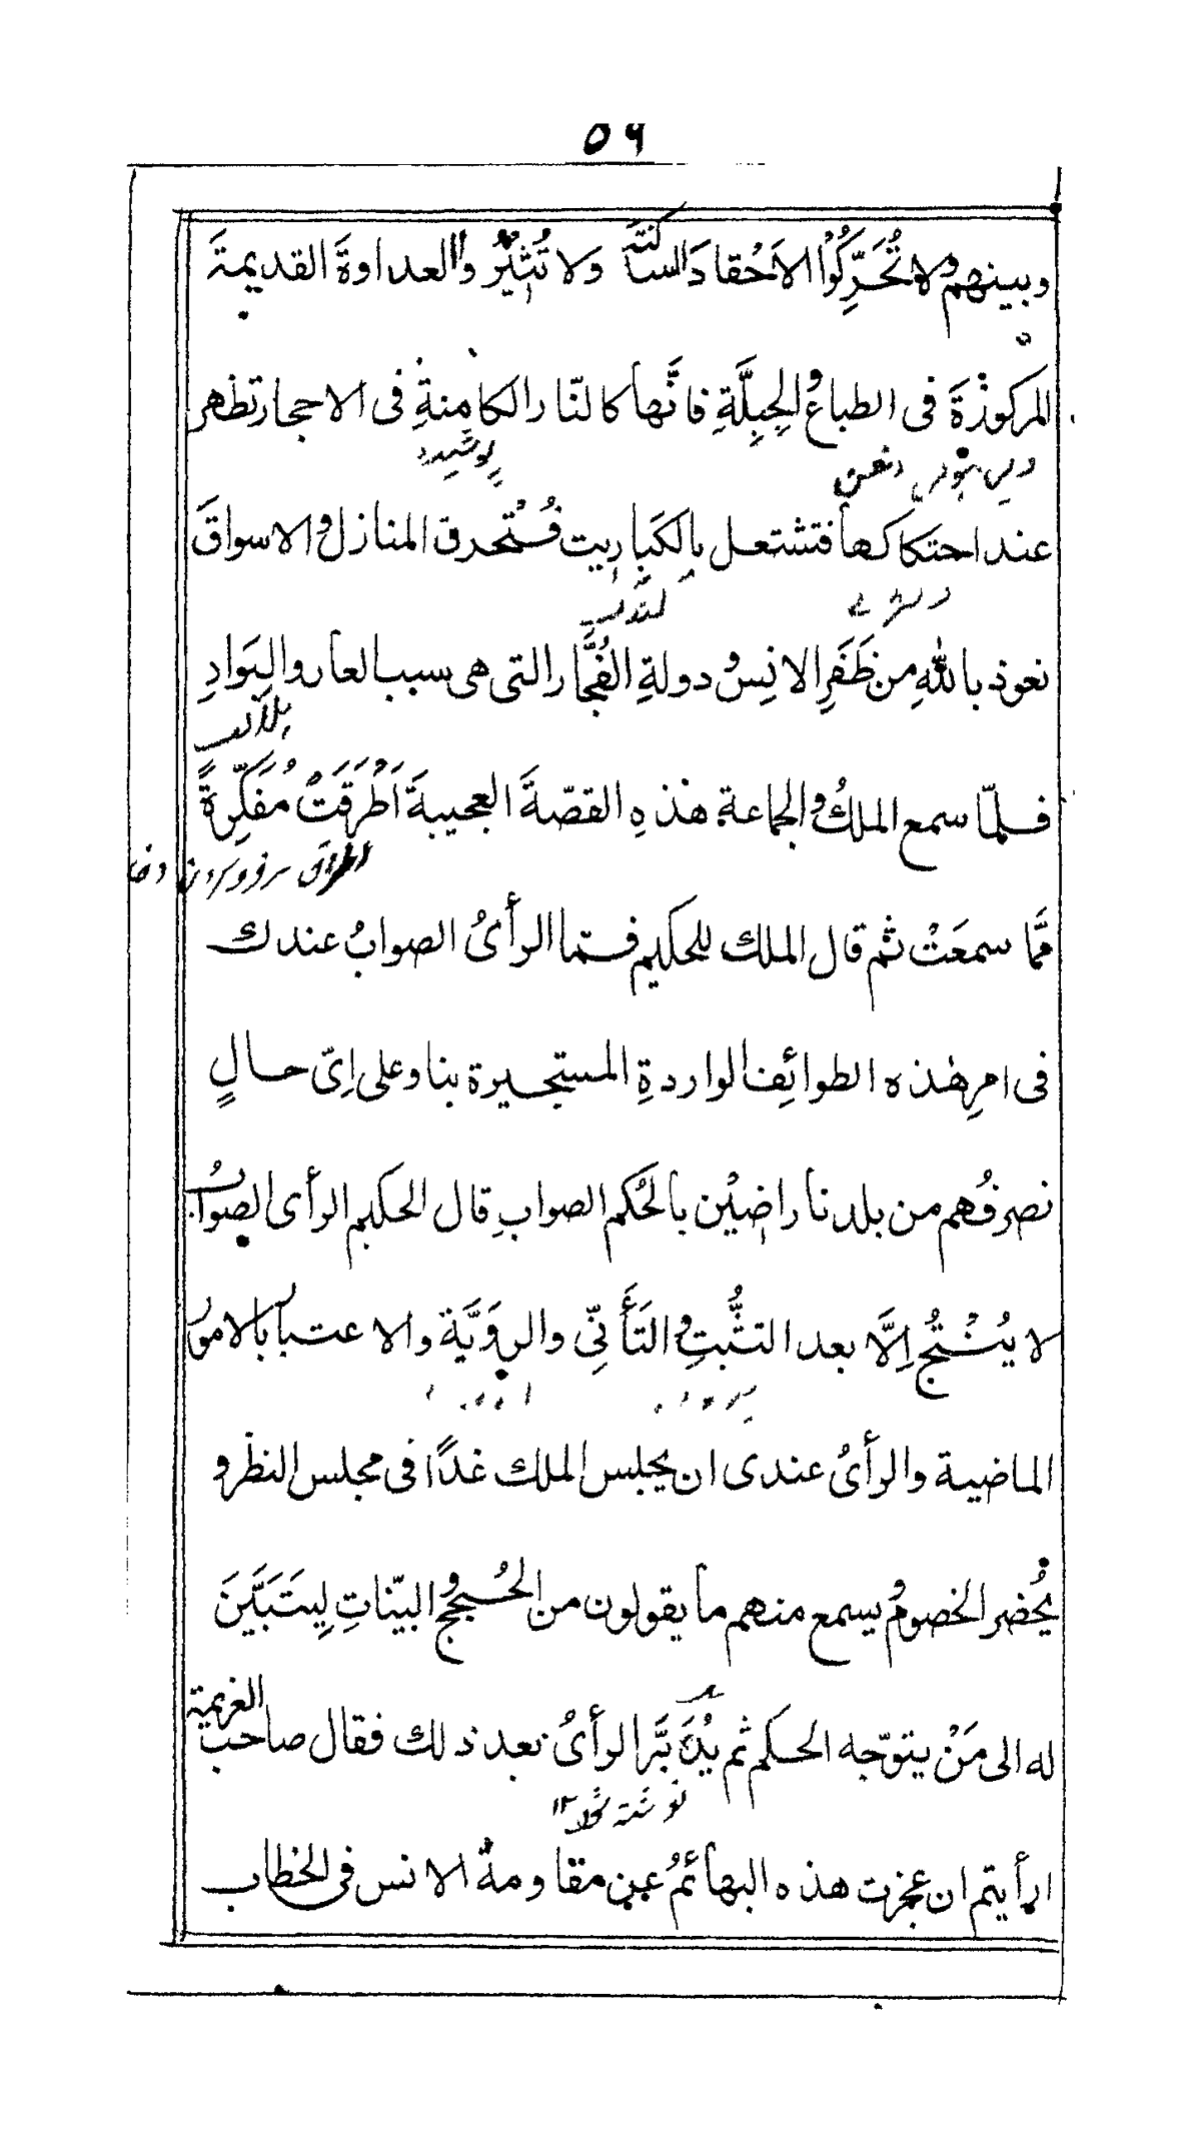 ٥٦
وبينهم ولا تُحَرِّكُوْا الاَحْقادَ الساكنةَ وَلا تُثِيْرُوْا العداوةَ القديمةَ
المركوزْةَ فى الطباع والجِبِلَّةِ فانَّها كالنّار الكامِنةِ فى الاحجار تظهر
پوشيده
عند احتكاكها فتشتعل بالكَبارِيت فُتُحرق المنازل والاسواقَ
نعوذ باللّٰهِ من ظَفَرِ الانِس ودولةِ الفُجَّار التى هى سبب العار والبَوَادِ
فلمّا سمع الملكُ والجماعة هذهِ القصّةَ العجيبةَ اَطْرَقَتْ مُفَكِّرِةً
اطراق سر فرو كردن
مّما سمعَتْ ثم قال الملك للحكيم فما الرأىُ الصوابُ عندك
فى امرِ هٰذه الطوائِف الواردةِ المستجيرة بنا وعلى اىّ حالٍ
نصرفُهم من بلدنا راضيْن بالحُكم الصوابِ قال الحكيم الرأى الصوابُ
لا يُنْتُج اِلَّا بعد التثُّبتِ والتَأَنِّى والروَيَّة والاعتبار بالامور
الماضية والرأىُ عندى ان يجلس الملك غدًا فى مجلس النظر و
يُحضر الخصومُ يسمع منهم ما يقولون من الحُجج والبيّناتِ لِيتَبَيَّنَ
له الى مَنْ يتوّجه الحكم ثم يُدَبَّر الرأىُ بعد ذلك فقال صاحب العزيمة
ارأيتم ان عجزت هذه البهائمُ عن مقاومة الانس فى الخطاب